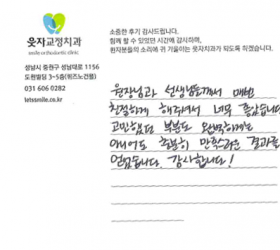 소중한 후기 감사드립니다.
함께 할 수 있었던 시간에 감사하며,
환자분들의 소리에 귀 기울이는 웃자치과가 되도록 하겠습니다.
웃자교정치과
smile orthodontic clinic
성남시 중원구 성남대로 1156
도환빌딩 3-5층(위즈노건물)
031 606 0282
letssmile.co.kr
원장님과 선생님들께서 매번
친절하게 해주셔서 너무 좋았습니다
고민했던 부분도 완벽하게는
아니어도 충분히 만족스러운 결과를
얻었습니다. 감사합니다!